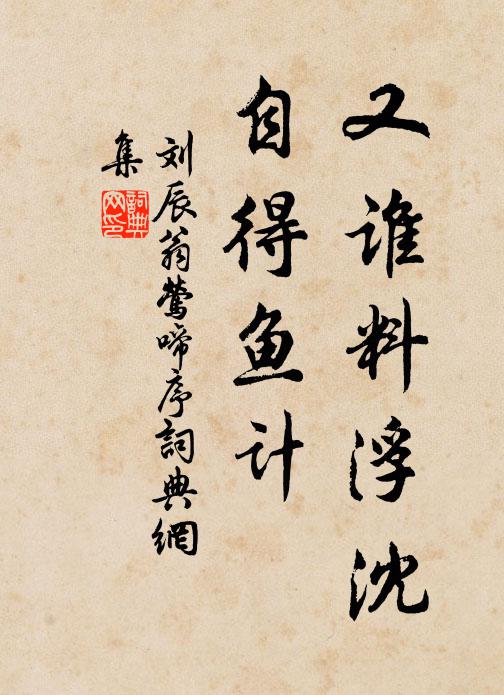 又谁料浮沈
自得鱼计
刘辰翁莺啼序詞典網
集
詞典
网印